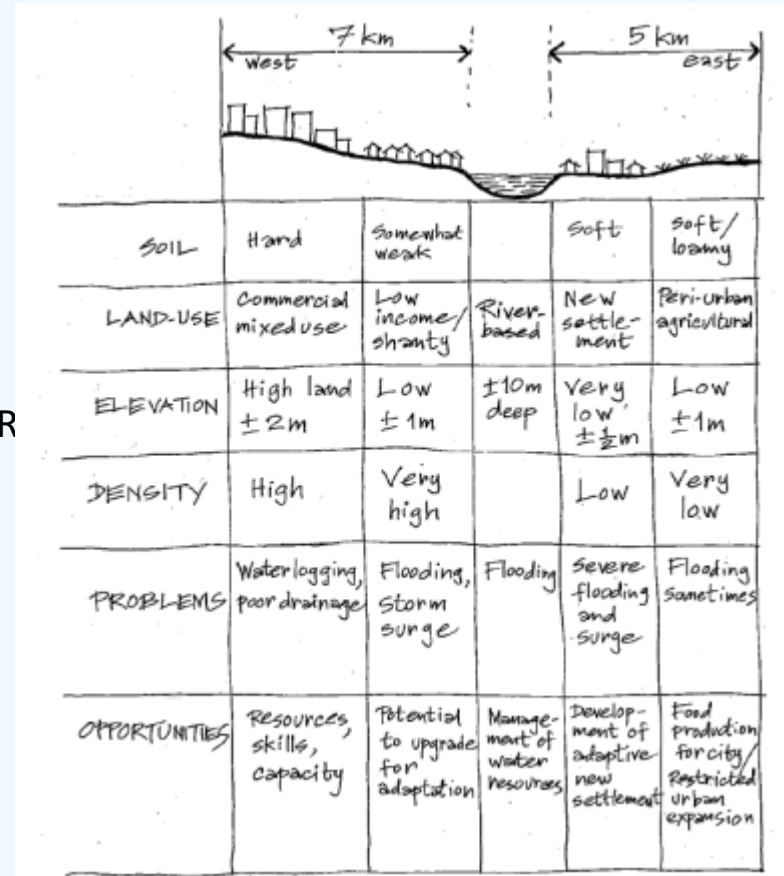 7 km
5 km
west
east
SOIL
Hard
Somewhat
weak
Soft
Soft/
loamy
LAND-USE
Commercial
mixed use
Low
income/
shanty
River-
based
New
settle-
ment
Peri-urban
agricultural
ELEVATION
High land
± 2m
Low
± 1m
±10m
deep
Very
low
±½m
Low
±1m
R
DENSITY
High
Very
high
Low
Very
low
PROBLEMS
Waterlogging,
poor drainage
Flooding,
storm
surge
Flooding
Severe
flooding
and
surge
Flooding
sometimes
OPPORTUNITIES
Resources,
skills,
capacity
Potential
to upgrade
for
adaptation
Manage-
ment of
water
resources
Develop-
ment of
adaptive
new
settlement
Food
production
for city/
Restricted
urban
expansion